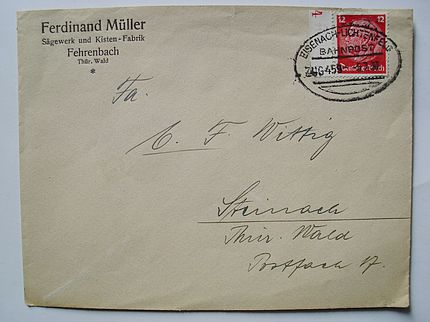 Ferdinand Müller
Sägewerk und Kisten-Fabrik
Fehrenbach
Thür. Wald
4
12 12
EISENACH-LICHTENFELS
BAHNPOST
ZUG 459
Fa.
C. F. Wittig
Steinach
Thür. Wald
Postfach